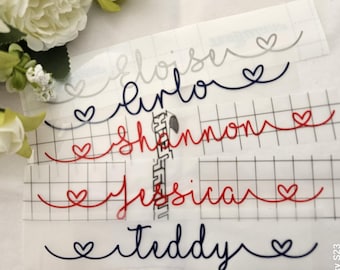 Eloise
Arlo
Shannon
Jessica
teddy